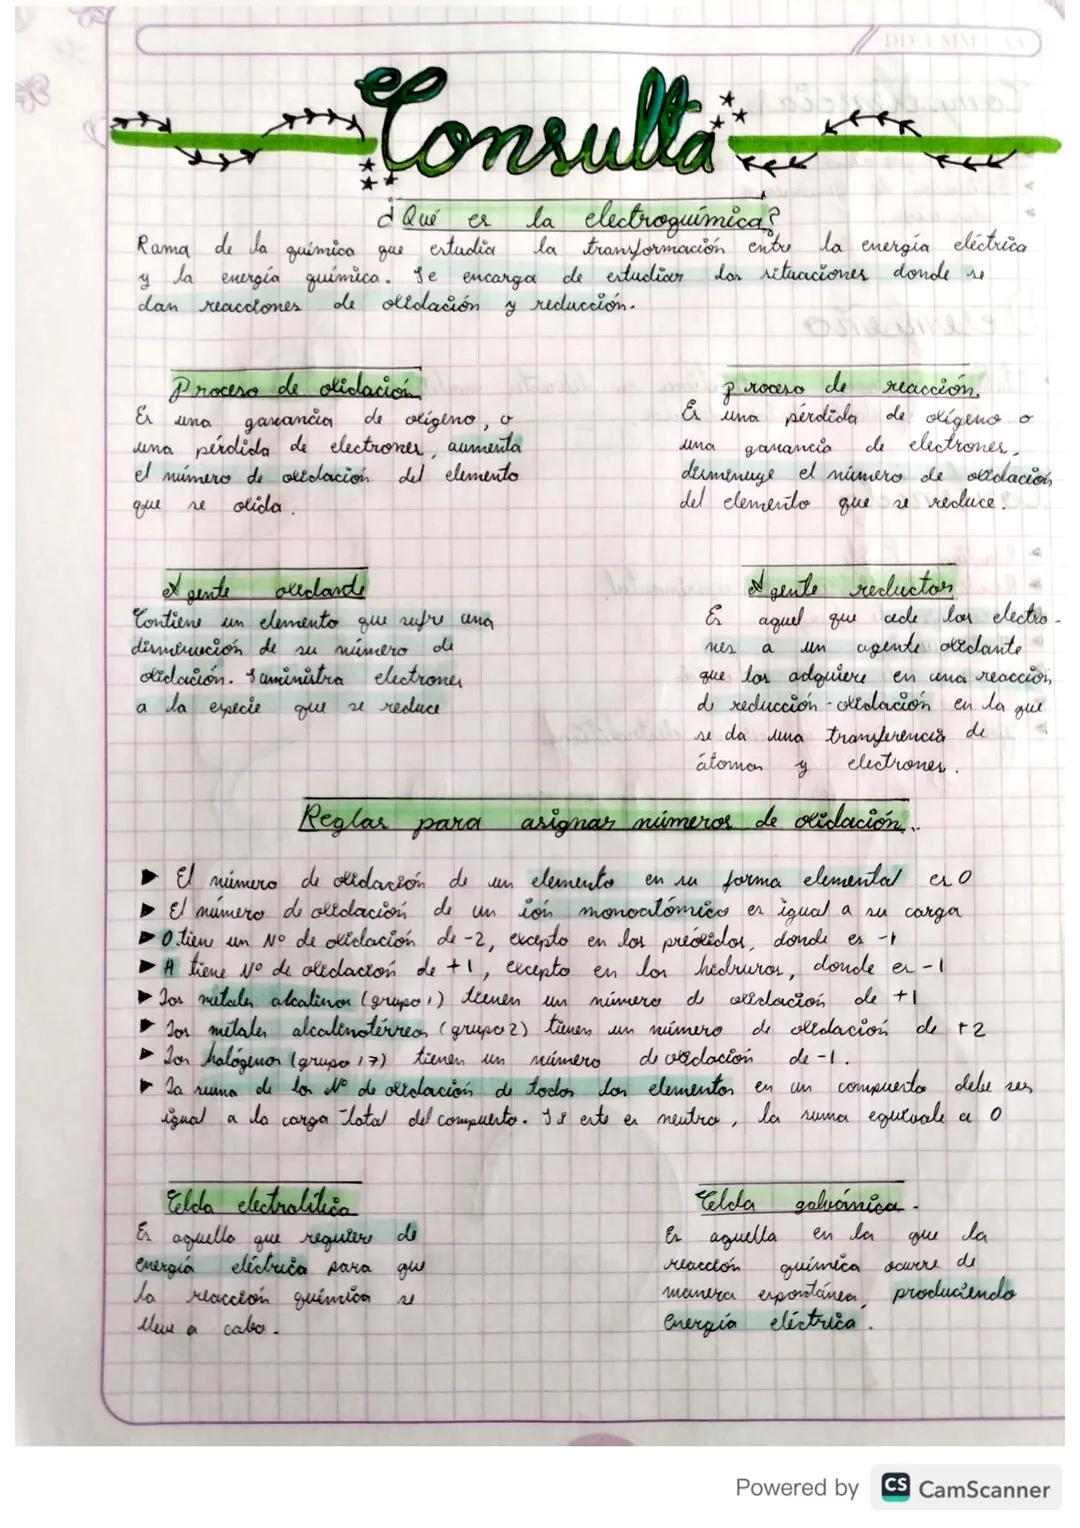 Consulta
¿Qué es la electroquímica?
Rama de la química que estudia la transformación entre la energía eléctrica
y la energía química. Se encarga de estudiar las situaciones donde se
dan reacciones de oxidación y reducción.
Proceso de oxidación
Es una ganancia de oxígeno, o
una pérdida de electrones, aumenta
el número de oxidación del elemento
que se oxida.
Proceso de reacción.
Es una pérdida de oxígeno o
una ganancia de electrones,
disminuye el número de oxidación
del elemento que se reduce.
Agente oxidante
Contiene un elemento que sufre una
disminución de su número de
oxidación. Suministra electrones
a la especie que se reduce
Agente reductor
Es aquel que cede los electro-
nes a un agente oxidante
que los adquiere en una reacción
de reducción-oxidación en la que
se da una transferencia de
átomos y electrones.
Reglas para asignar números de oxidación.
▶ El número de oxidación de un elemento en su forma elemental es 0
▶ El número de oxidación de un ión monoatómico es igual a su carga
▶ O tien un Nº de oxidación de -2, excepto en los preóxidos, donde es -1
▶ H tiene Nº de oxidación de +1, excepto en los hidruros, donde es -1
▶ Los metales alcalinos (grupo 1) tienen un número de oxidación de +1
▶ Los metales alcalinotérreos (grupo 2) tienen un número de oxidación de +2
▶ Los halógenos (grupo 17) tienen un número de oxidación de -1.
▶ La suma de los Nº de oxidación de todos los elementos en un compuesto debe ser
igual a la carga total del compuesto. Si este es neutro, la suma equivale a 0
Celda electrolítica
Es aquello que requiere de
energía eléctrica para que
la reacción química se
lleve a cabo.
Celda galvánica.
Es aquella en la que la
reacción química ocurre de
manera espontánea, produciendo
energía eléctrica.
Powered by CS CamScanner